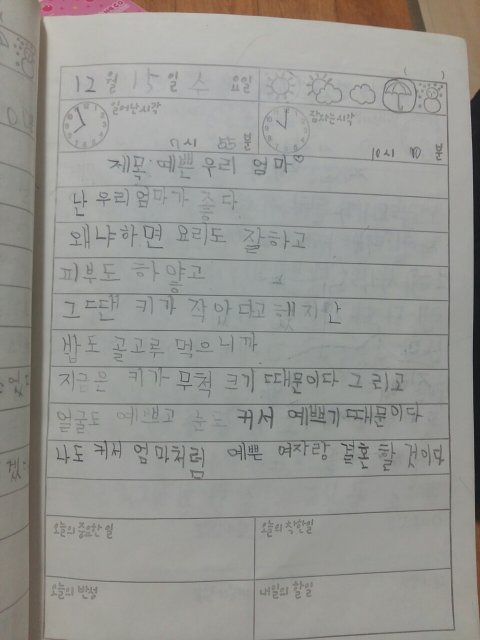 12월 15일 수 요일
일어난시각
7시 55분
잠자는시각
10시 10분
제목: 예쁜 우리 엄마♡
난 우리엄마가 좋다.
왜냐하면 요리도 잘하고
피부도 하얗고
그땐 키가 작았다고 했지만
밥도 골고루 먹으니까
지금은 키가 무척 크기 때문이다 그리고
얼굴도 예쁘고 눈도 커서 예쁘기때문이다
나도 커서 엄마처럼 예쁜 여자랑 결혼 할 것이다
오늘의 중요한 일
오늘의 착한일
오늘의 반성
내일의 할일